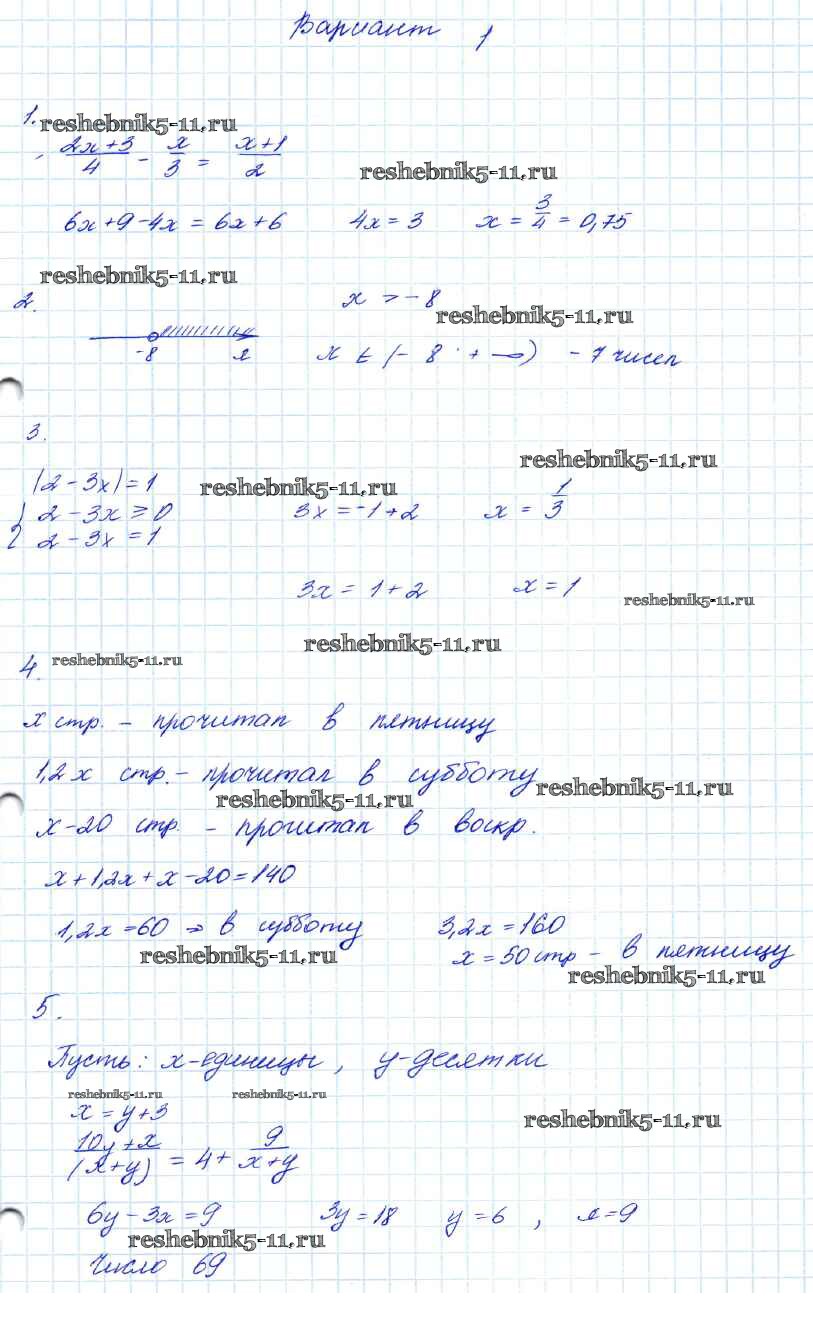 Вариант 1
1. reshebnik5-11.ru
(2x+3)/4 - x/3 = (x+1)/2
reshebnik5-11.ru
6x+9-4x = 6x+6 4x = 3 x = 3/4 = 0,75
reshebnik5-11.ru
2. x > -8
reshebnik5-11.ru
-8 x x ∈ (-8 ; +∞) - 7 чисел
3.
reshebnik5-11.ru
|2-3x| = 1 reshebnik5-11.ru
{ 2-3x ≥ 0 3x = -1+2 x = 1/3
2-3x = 1
3x = 1+2 x = 1 reshebnik5-11.ru
reshebnik5-11.ru
4. reshebnik5-11.ru
x стр. - прочитал в пятницу
1,2x стр. - прочитал в субботу reshebnik5-11.ru
reshebnik5-11.ru
x-20 стр. - прочитал в воскр.
x+1,2x+x-20=140
1,2x=60 → в субботу 3,2x=160
reshebnik5-11.ru x = 50 стр - в пятницу
reshebnik5-11.ru
5.
Пусть: x-единицы, y-десятки
reshebnik5-11.ru reshebnik5-11.ru
x = y+3 reshebnik5-11.ru
(10y+x)/(x+y) = 4 + 9/(x+y)
6y-3x=9 3y=18 y=6, x=9
reshebnik5-11.ru
Число 69